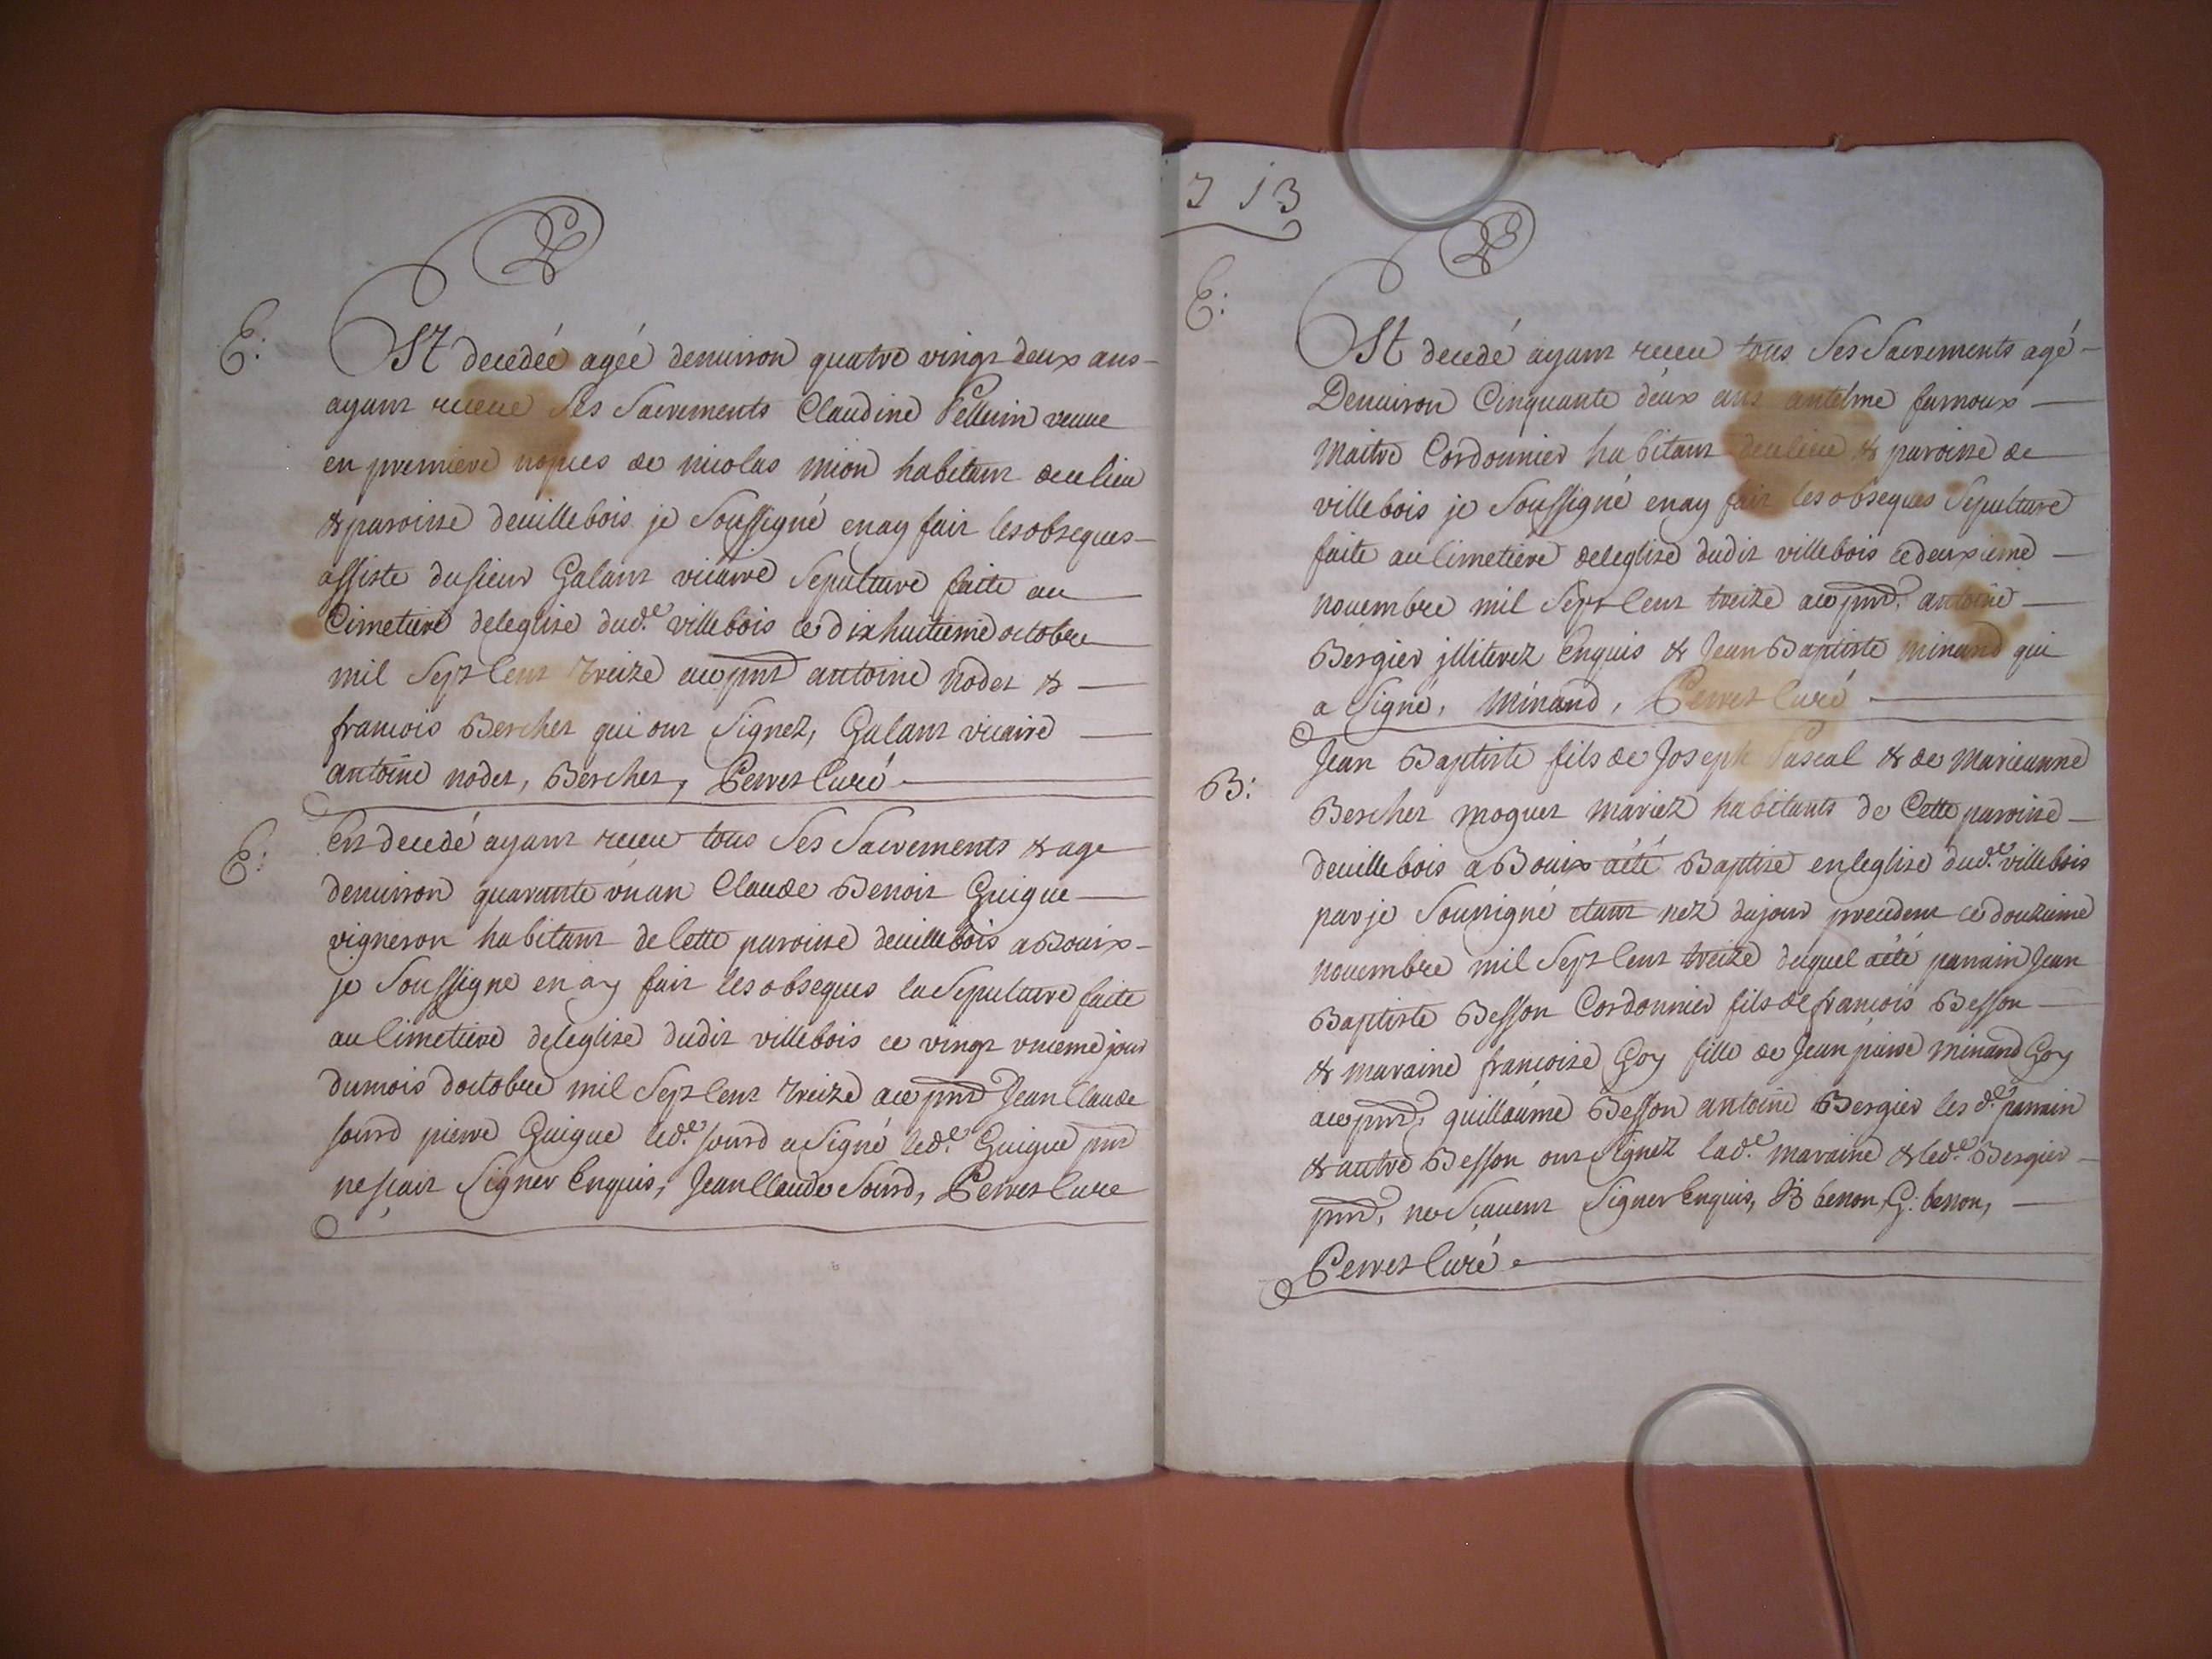 E:
Est decedéé agéé denuiron quatre vingt deux ans
ayant receue ses Sacrements Claudine Pellerin veuue
en premiere nopces de nicolas mion habitant decelieu
& paroisse deuillebois je Soussigné enay fait lesobseques
assisté dusieur Galant vicaire Sepulture faite au
Cimetiere deleglise dud.t villebois ce dixhuitieme octobre
mil Sept Cent treize aux pnts antoine nodet &
francois Berchet qui ont Signez, Galant vicaire
antoine nodet, Berchet, Perret Curé
E:
Est decedé ayant receu tous Ses Sacrements & age
denuiron quarante vn an Claude Benoit Guigue
vigneron habitant de Cette paroisse deuillebois a Bouix
je Soussigné en ay fait les obseques la Sepulture faite
au Cimetiere deleglise dudit villebois ce vingt vnieme jour
dumois d'octobre mil Sept Cent treize aux pnts Jean Claude
sourd pierre Guigue led.t sourd a Signé led.t Guigue pnt
nesçait Signer Enquis, Jean Claude Sourd, Perret Curé
713
E:
Est decedé ayant receu tous Ses Sacrements agé
Denuiron Cinquante deux ans antelme furnoux
Maitre Cordonnier habitant decelieu & paroisse de
villebois je Soussigné enay fait les obseques Sepulture
faite au Cimetiere deleglise dudit villebois ce deuxieme
nouembre mil Sept Cent treize aux pnts. antoine
Bergier jlliterez Enquis & Jean Baptiste minand qui
a Signé, Minand, Perret Curé
B:
Jean Baptiste fils de Joseph Pascal & de Marieanne
Berchet moguet mariez habitants de Cette paroisse
deuillebois a Bouix aété Baptisé enleglise dud.t villebois
par je Soussigné étant nez dujour precedent ce douzieme
nouembre mil Sept Cent treize duquel aété parrain Jean
Baptiste Besson Cordonnier fils de françois Besson
& maraine françoise Goy fille de Jean pierre minand Goy
aux pnts. guillaume Besson antoine Bergier les d.ts parrain
& autre Besson ont Signez lad.e maraine & led.t Bergier
pnts. ne Sçauent Signer Enquis, B besson, G. besson,
Perret Curé